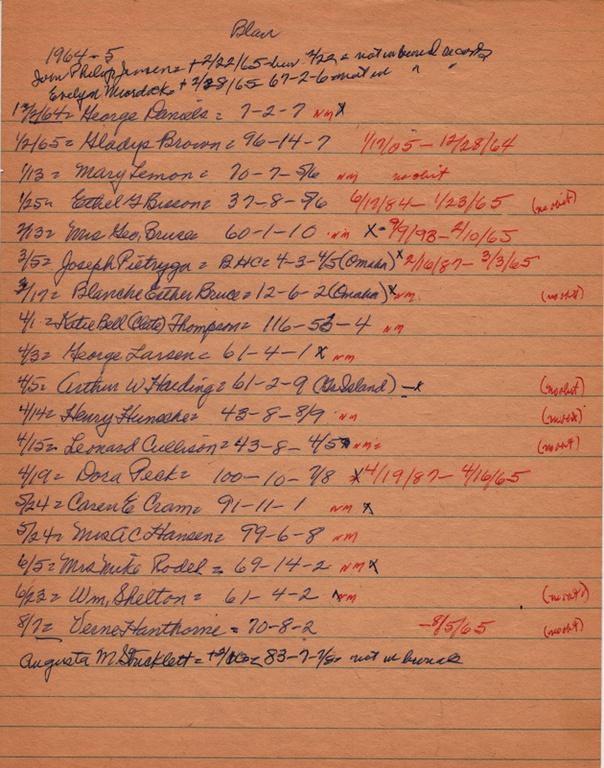 Blair
1964-5
John Philip Jensen = + 2/22/65 - bur 2/22 = not in burial records
Evelyn Murdock + 2/28/65 67-2-6 not in " "
12/2/64 = George Daniels = 7-2-7 NM X
1/2/65 = Gladys Brown = 96-14-7 1/17/05 - 12/28/64
1/13 = Mary Lemon = 70-7-5/6 NM no obit
1/25 = Ethel G Bisson = 37-8-5/6 6/17/84 - 1/23/65 (no obit)
2/13 = Mrs Geo. Bruse = 60-1-10 NM X - 9/9/93 - 2/10/65
3/5 = Joseph Pietryga = BHC = 4-3-4/5 (Omaha) X 2/16/87 - 3/3/65
3/17 = Blanche Esther Bruce = 12-6-2 (Omaha) X NM. (no obit)
4/1 = Katie Bell (Cate) Thompson = 116-53-4 NM
4/3 = George Larsen = 61-4-1 X NM
4/5 = Arthur W Harding = 61-2-9 (Gr. Island) - X (no obit)
4/14 = Henry = 43-8-8/9 NM (no obit)
4/15 = Leonard Cullison = 43-8-4/5 NM = (no obit)
4/19 = Dora Peck = 100-10-7/8 X 4/19/87 - 4/16/65
5/24 = Caren E Cram = 91-11-1 NM X
5/24 = Mrs A C Hansen = 79-6-8 NM
6/5 = Mrs Mike Rodel = 69-14-2 NM X
6/23 = Wm. Shelton = 61-4-2 NM (no obit)
8/7 = Verne Hawthorne = 70-8-2 - 8/5/65 (no obit)
Augusta M Stricklett = = 83-7-7/8 = not in burials